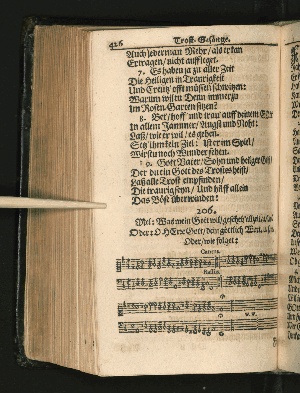 426 Trost-Gesänge.
Auch jederman Mehr/ als er kan
Ertragen/ nicht auffleget.
7. Es haben ja zu aller Zeit
Die Heiligen in Traurigkeit
Und Creutz offt müssen schwitzen:
Warum wilt Denn immerzu
Im Rosen-Garten sitzen?
8. Bet/ hoff und trau auff deinem
In allem Jammer/ Angst und Noht:
Laß/ wie er wil/ es gehen.
Setz ihm kein Ziel: Ist er im Spiel/
Wirstu noch Wunder sehen.
9. Gott Vater/ Sohn und heilger Geist/
Der du ein Gott des Trostes heist/
Laß alle Trost empfinden/
Die traurig seyn/ Und hilff allein
Das Böse überwinden!
206.
Mel: Was mein Gott wil/ gescheh
Oder: O HErre Gott/ dein göttlich Wort
Oder/ wie folget:
Cantus.
Bassus.